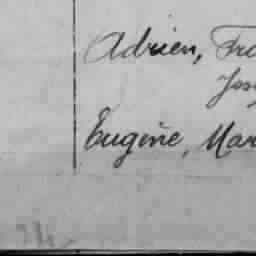 Adrien, Fra
Jos
Eugène, Mar